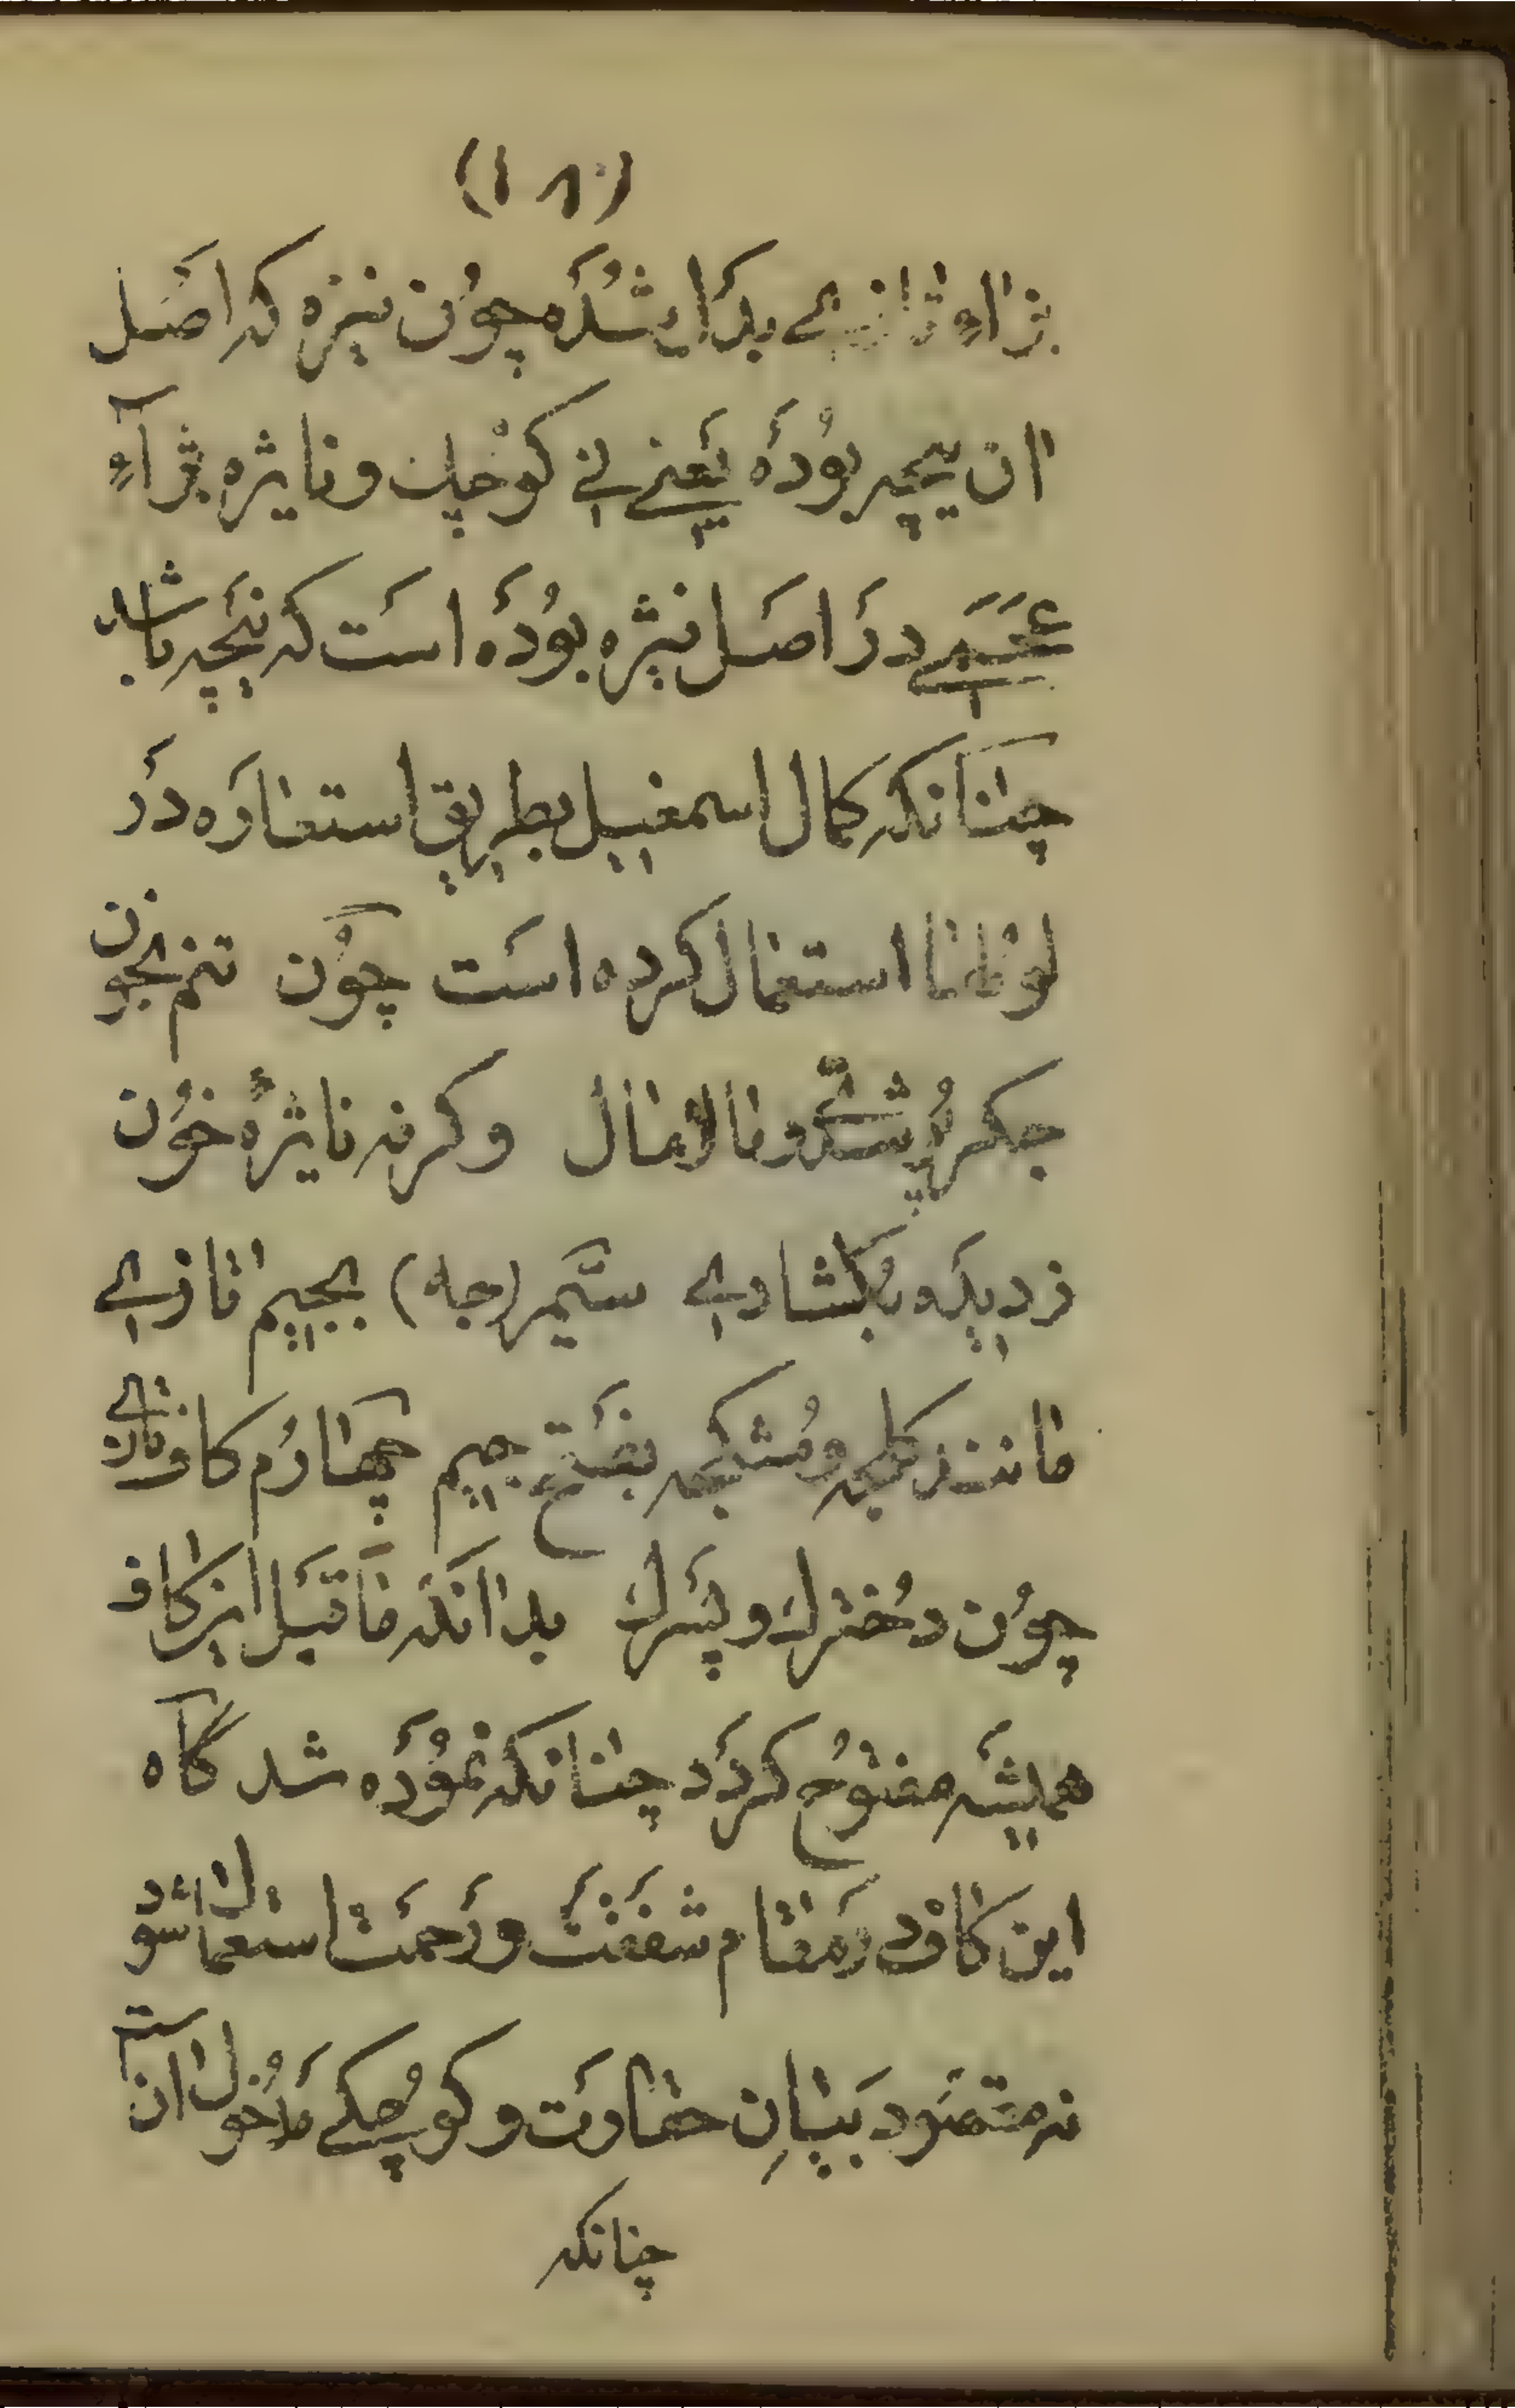 (۱۸۰)
بزاءِ تازی بدل شُدَه چوُن نیزه که اصَل
ان نیچه بوُدَه یَعنے نے کوُچک و نایژه بژآءِ
عجَمے دَر اصَل نیژه بوُدَه است که نیَچه باشد
چنانکه کمال اسمعیل بطریقِ استعارَه دَر
استعمال کرده است چوُن تنم نجون
جکر وکرنه نایژهٔ خوُن
زدیدَه بکشادی ستَیمر (چه) بجیم تازی
مانند کلیچه ومُشکیچه بفتَح جیم چهارُم کاف تازی
چوُن دخُترك و پسَرك بدانکه ماقبَل این کاف
همیشَه مفتوُح کردَد چنانکه نموُدَه شد گاه
این کاف دَرمقام شفقَت ورَحمَت استعمال شود
نه مقصوُد بَیانِ حقارَت وکوچُکے مَدخوُل انست
چنانکه